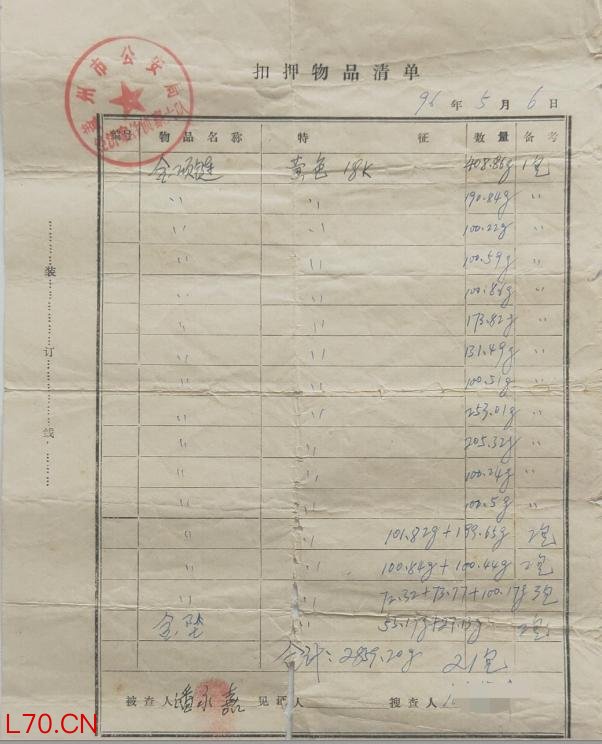 扣押物品清单
96年5月6日
州市公安局
编号 物品名称 特征 数量 备考
金项链 黄色 18K 408.86g 1包
〃 〃 190.84g 〃
〃 〃 100.22g 〃
〃 〃 100.59g 〃
〃 〃 〃
〃 〃 173.82g 〃
〃 〃 131.49g 〃
〃 〃 100.51g 〃
〃 〃 253.01g 〃
〃 〃 205.32g 〃
〃 〃 100.24g 〃
〃 〃 100.5g 〃
〃 〃 101.82g+199.65g 2包
〃 〃 100.84g+100.44g 2包
〃 〃 72.32+73.77+100.17g 3包
金坠 〃 2包
合计:2859.20g 21包
被查人 潘永嘉 见证人 搜查人
装订线
L70.CN